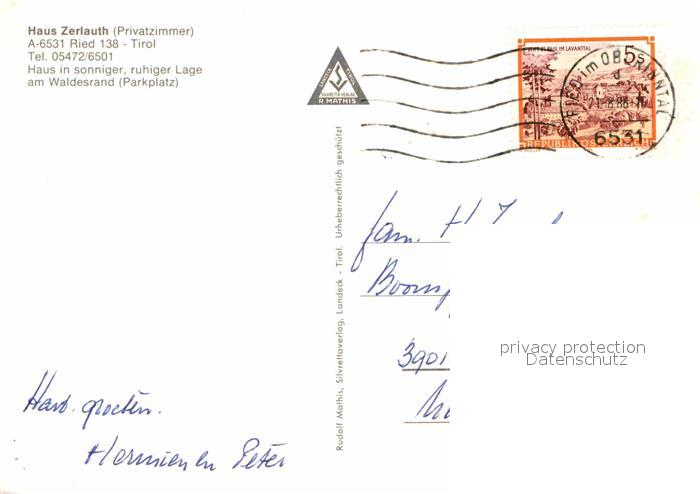 Haus Zerlauth (Privatzimmer)
A-6531 Ried 138 - Tirol
Tel. 05472/6501
Haus in sonniger, ruhiger Lage
am Waldesrand (Parkplatz)
SILVRETTA VERLAG
R. MATHIS
STIFT ST. PAUL IM LAVANTTAL
5
REPUBLIK ÖSTERREICH
RIED im OBERINNTAL
6531
Rudolf Mathis, Silvrettaverlag, Landeck - Tirol. Urheberrechtlich geschützt
fam. H
Boom
3901
privacy protection
Datenschutz
Hart. groeten.
Hermien en Peter